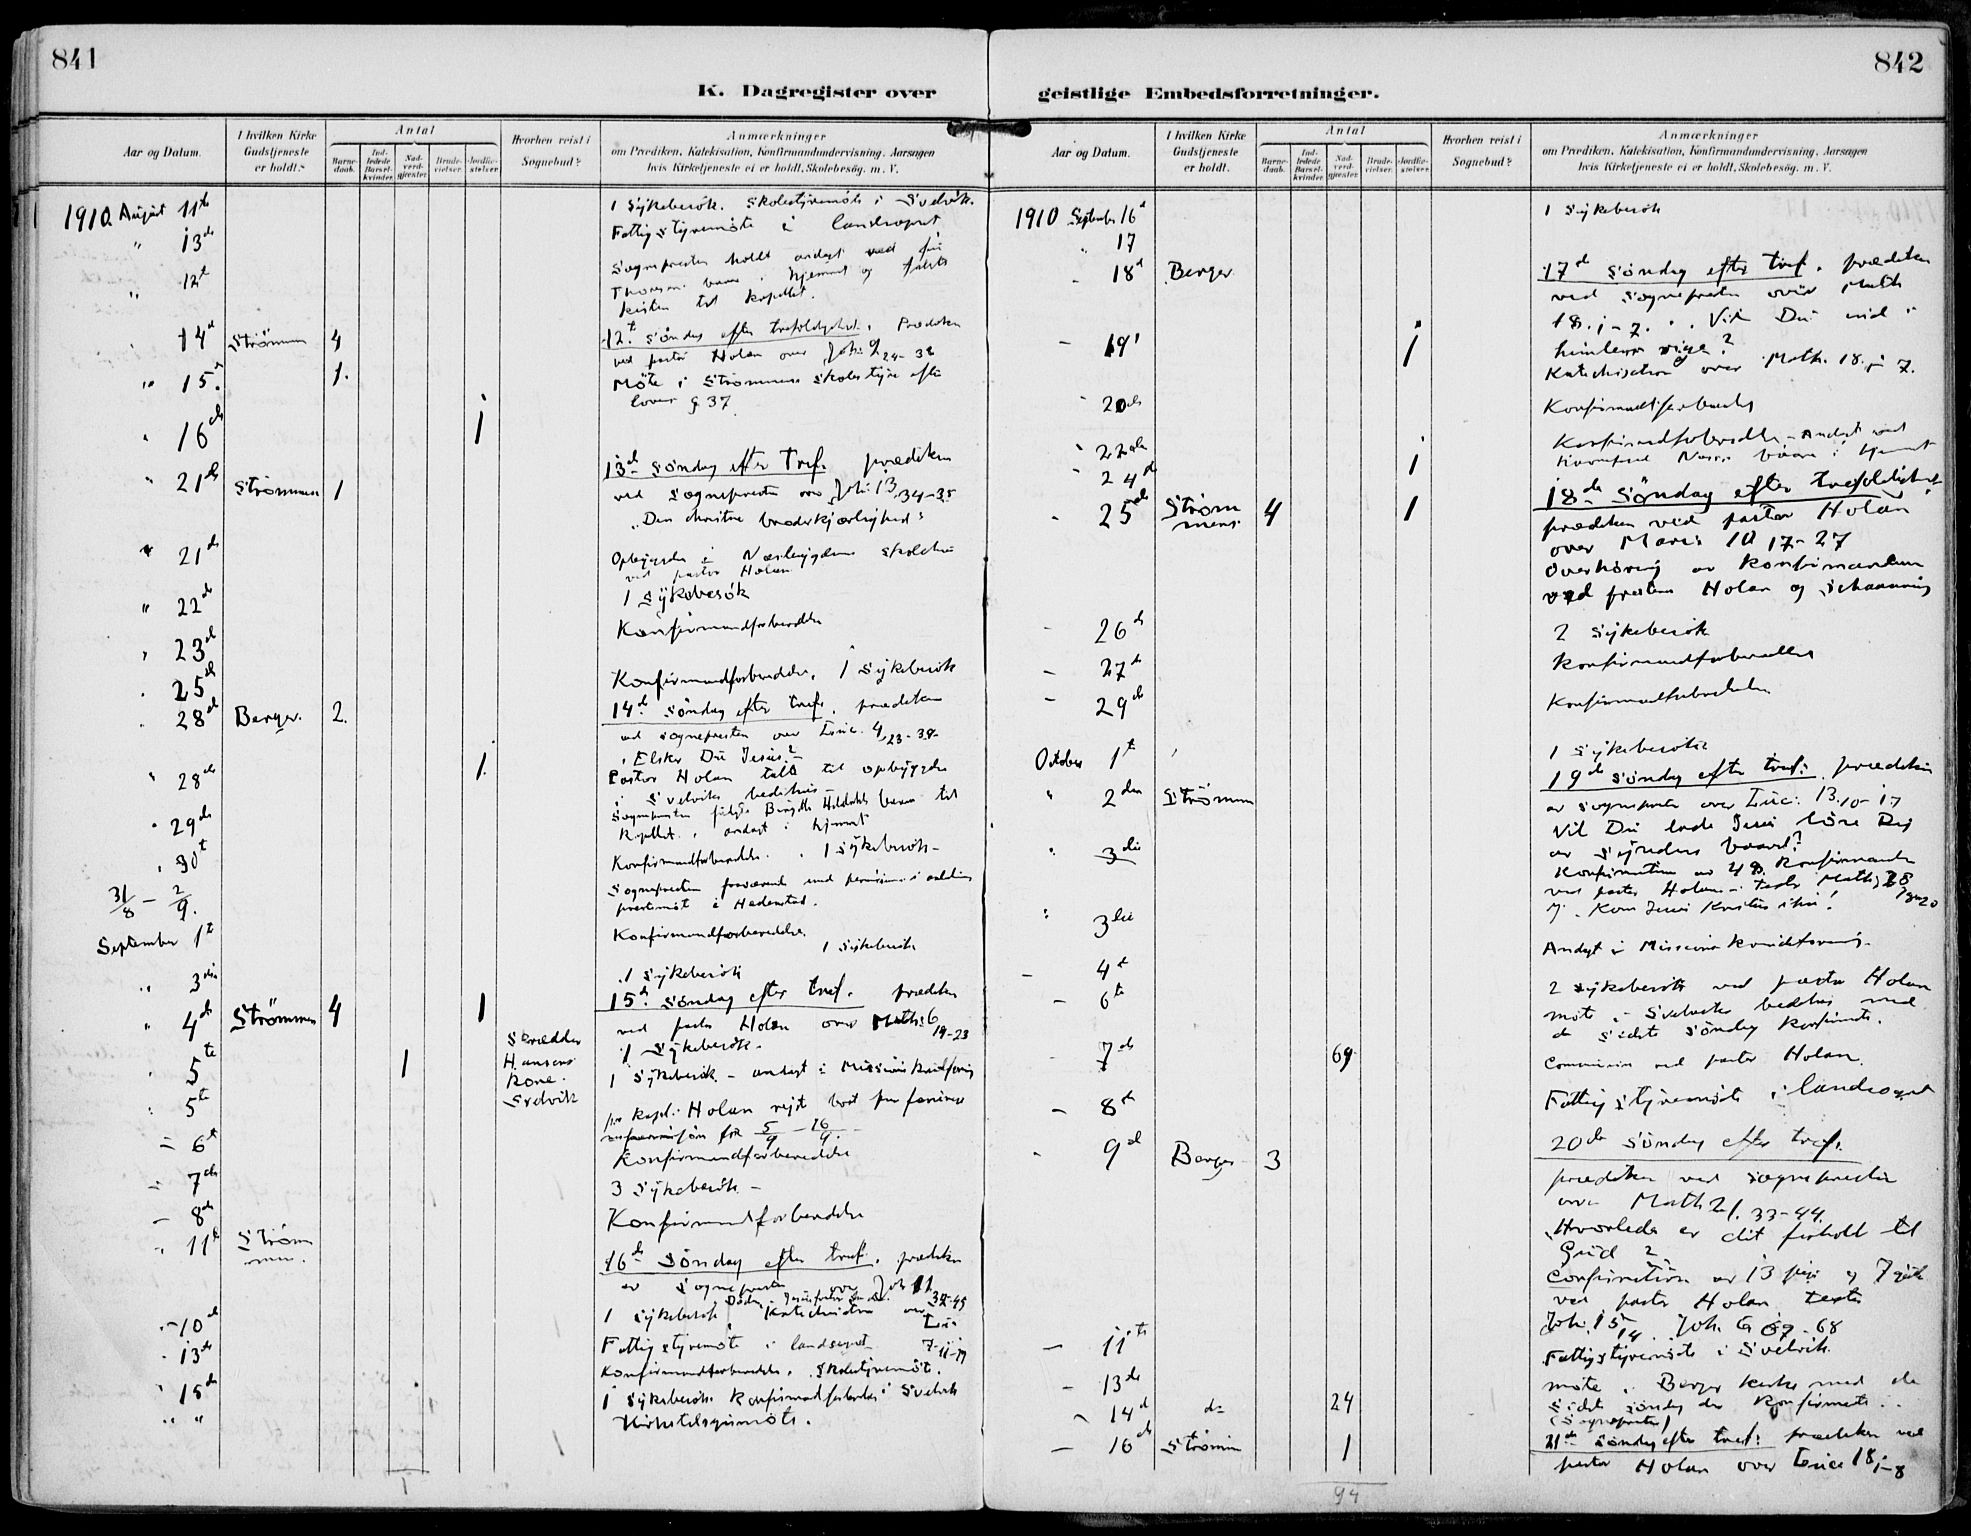 841
K. Dagregister over
Aar og Datum.
I hvilken Kirke Gudstjeneste er holdt.
Antal
Barnedaab.
Indledede Barselkvinder.
Nadverdgjester.
Brudevielser.
Jordfæstelser.
Hvorhen reist i Sognebud?
Anmærkninger
om Prædiken, Katekisation, Konfirmandundervisning, Aarsagen
hvis Kirketjeneste ei er holdt, Skolebesøg. m. V.
1910 August 11te 1 Sykebesök. Skolestyremöte i Svelvik.
" 13de Fattigstyremöte i landsognet
" 12te Sognepresten holdt andagt ved frü
Thorsens baare i hjemmet og fulgte
kisten til kapellet.
" 14d Strömm 4 12te söndag efter trefoldighet. Prædiken
ved pastor Holan over Joh: 9 24-38
" 15. 1. Möte i Strömmens skolestyre efter
loven § 37
" 16de 1
" 21de Strömmen 1 13de Söndag efter Tref. prædiken
ved Sognepresten over Joh: 13 34-35
"Den christne broderkjærlighed"
" 21de Opbyggelse i Nesbygdens skolehus
ved pastor Holan
" 22de 1 Sykebesök
" 23de Konfirmandforberedelse
" 25de Konfirmandforberedelse. 1 sykebesök
" 28de Berger. 2. 14de söndag efter tref. prædiken
ved sognepresten over Luc. 4, 23-30
"Elsker Du Jesus?"
" 28de 1. Pastor Holan talte til opbyggelse
i Svelviks bedehus
" 29de Sognepresten fulgte baare til
Kapellet. andagt i hjemmet
" 30t Konfirmandforberedelse. 1 Sykebesök
31/8 - 2/9. Sognepresten fraværende med permission i anledning
prestemöt i Hedenstad.
September 1t Konfirmandforberedelse.
1 Sykebesök
" 3die 1 Sykebesök
" 4de Strömmen 4 1 15de Söndag efter tref. prædiken
ved pastor Holan over Math: 6 19-23
" 5te 1 Skrædder Hansens Kone. Svelvik 1 Sykebesök
" 5te 1 Sykebesök - andagt i Missions kvindforening
" 6t pr. kapl. Holan rejst bort paa ferie
for 5/9 - 16/9.
Konfirmandforberedelse
" 7de 3 Sykebesök
" 8de Konfirmandforberedelse
" 11te Strömmen. 16de Söndag efter tref. prædiken
av Sognepresten over Joh 11 32-45
1 Sykebesök Katechisation over Luc
" 10de Fattigstyremöte i landsognet 7-11-17
" 13de Konfirmandforberedelse. Skolestyremöte.
" 15de 1 Sykebesök. Konfirmandforberedelse i Svelvik
" " Kirketilsynsmöte.
1
842
geistlige Embedsforretninger.
Aar og Datum.
I hvilken Kirke Gudstjeneste er holdt.
Antal
Barnedaab.
Indledede Barselkvinder.
Nadverdgjester.
Brudevielser.
Jordfæstelser.
Hvorhen reist i Sognebud?
Anmærkninger
om Prædiken, Katekisation, Konfirmandundervisning, Aarsagen
hvis Kirketjeneste ei er holdt, Skolebesøg. m. V.
1910 September 16d 1 Sykebesök
" 17
" 18d Berger 17d Söndag efter tref. prædiken
ved Sognepresten over Math
18. 1-7. Vil Du ind i
himlens rige?
- 19 1 Katechisation over Math. 18. 1-7.
" 20de Konfirmandforberedelse
" 22de Konfirmandforberedelse - Andagt ved
" 24de 1 baare i hjemmet
" 25de Strömmens 4 1 18de Söndag efter trefoldighet
prædiken ved pastor Holan
over Marc: 10 17-27
Overhöring av konfirmanderne
ved presterne Holan og Schaanning
- 26de 2 Sykebesök
- 27de Konfirmandforberedelse
- 29de Konfirmandforberedelse
October 1t 1 Sykebesök
" 2den Strömmen 19de söndag efter tref. prædiken
av sognepresten over Luc: 13. 10-17
Vil Du lade Jesus löse Dig
av Syndens baand?
" 3die Konfirmation av 48 konfirmanter
ved pastor Holan - text Math 28
Kom Jesus Kristus ihu!
" 3die Andagt i Missions kvindforening
- 4de 2 sykebesök ved pastor Holan
- 6te möte i Svelviks bedehus med
de sidste Söndag konfirmerte.
- 7de 69 Communion ved pastor Holan.
- 8de Fattigstyremöte i landsognet
- 9de Berger 3 20de Söndag efter tref.
prædiken ved sognepresten
over Math 21. 33-44.
"Hvorledes er dit forhold til
Gud?"
Confirmation av 13 piger og 7 gutter
ved pastor Holan. text
Joh: 15 14. Joh. 6 67-68
- 11te Fattigstyremöte i Svelvik
- 13de möte i Berger kirke med de
sidste söndag der konfirmerte.
- 14d do 24 (Sognepresten)
- 16de Strömm 1 21de söndag efter tref: prædiken ved
pastor Holan over Luce 18 1-8
94